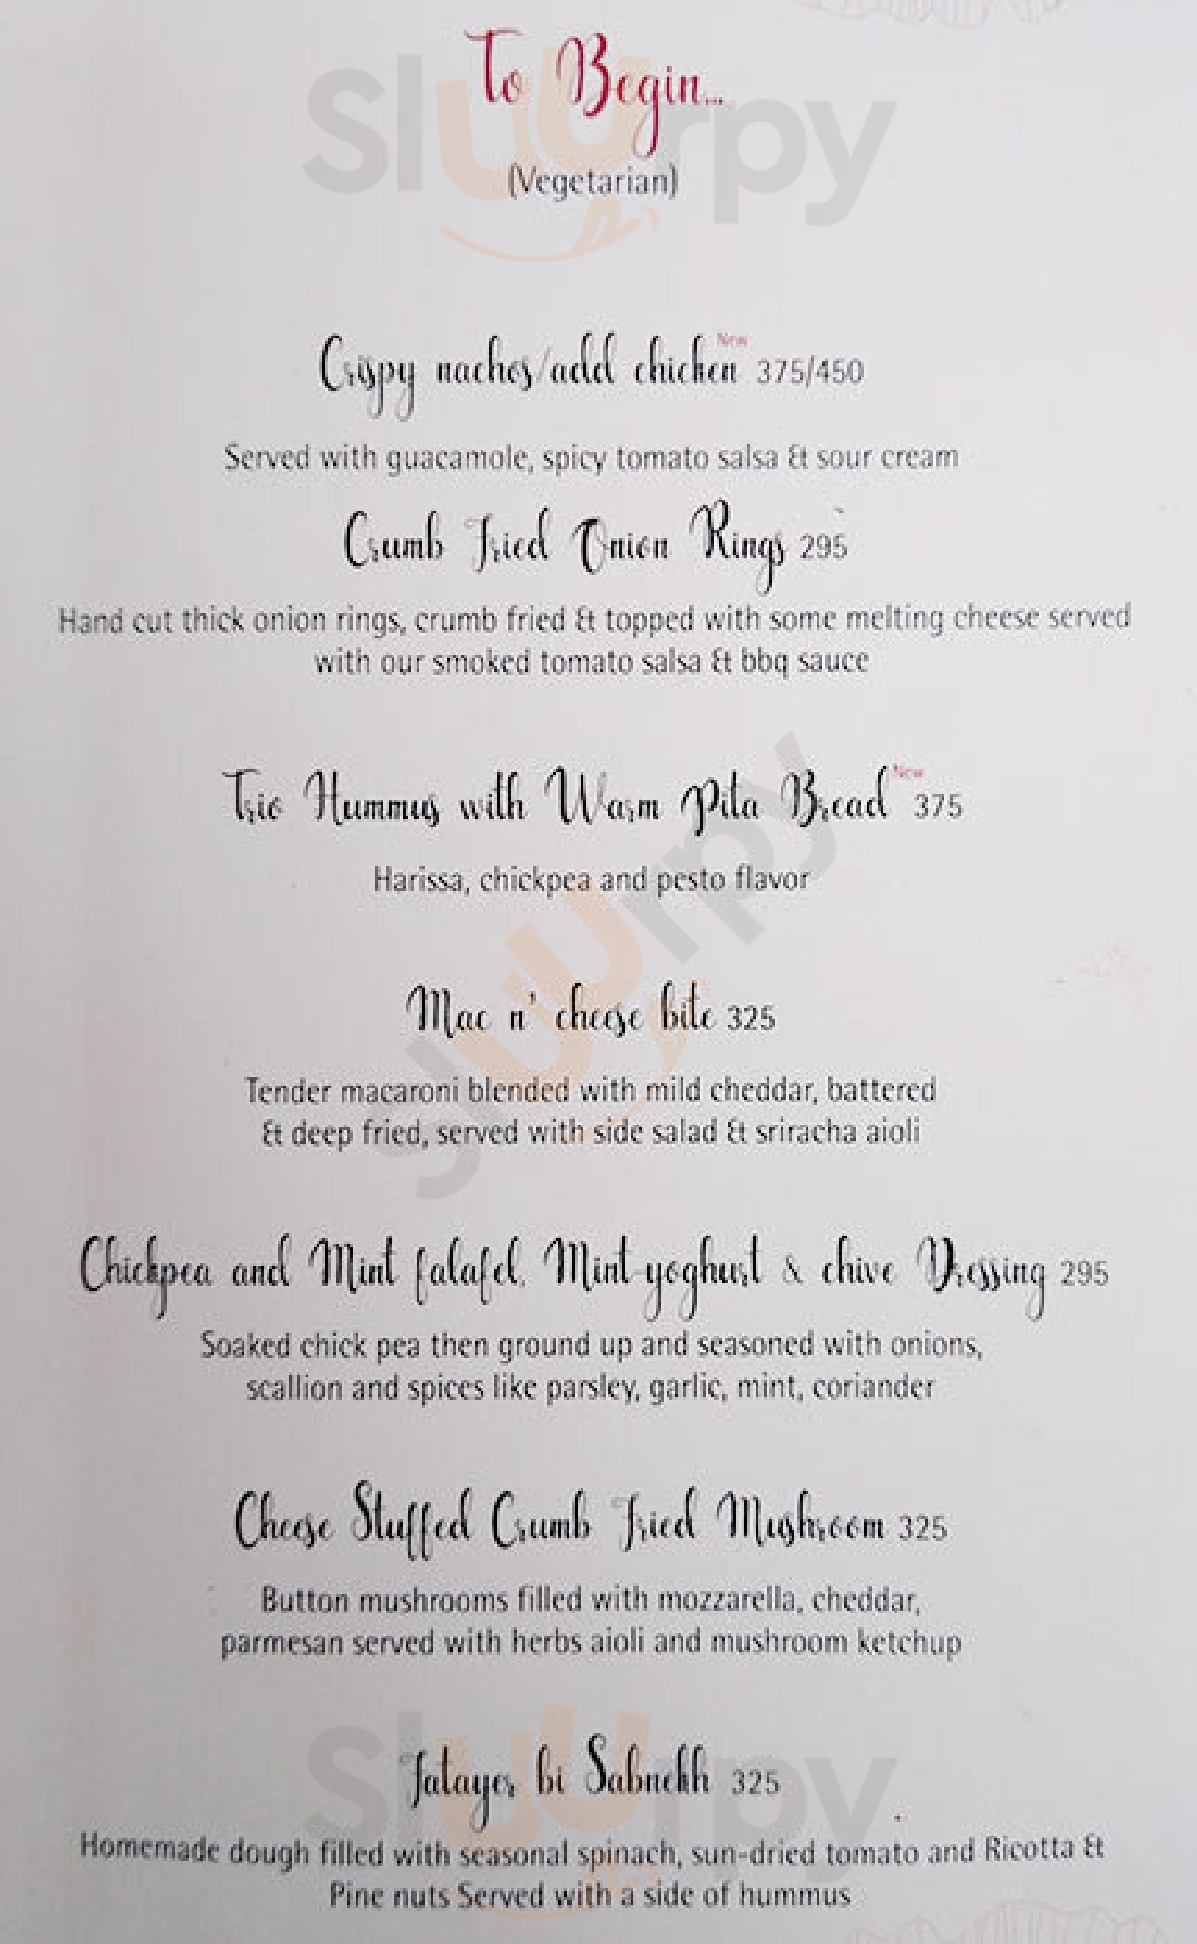 To Begin...
(Vegetarian)
Crispy nachos/add chicken New 375/450
Served with guacamole, spicy tomato salsa & sour cream
Crumb Fried Onion Rings 295
Hand cut thick onion rings, crumb fried & topped with some melting cheese served
with our smoked tomato salsa & bbq sauce
Trio Hummus with Warm Pita Bread New 375
Harissa, chickpea and pesto flavor
Mac n' cheese bite 325
Tender macaroni blended with mild cheddar, battered
& deep fried, served with side salad & sriracha aioli
Chickpea and Mint falafel, Mint-yoghurt & chive Dressing 295
Soaked chick pea then ground up and seasoned with onions,
scallion and spices like parsley, garlic, mint, coriander
Cheese Stuffed Crumb Fried Mushroom 325
Button mushrooms filled with mozzarella, cheddar,
parmesan served with herbs aioli and mushroom ketchup
Fatayer bi Sabnekh 325
Homemade dough filled with seasonal spinach, sun-dried tomato and Ricotta &
Pine nuts Served with a side of hummus
Sluurpy
Sluurpy
Sluurpy